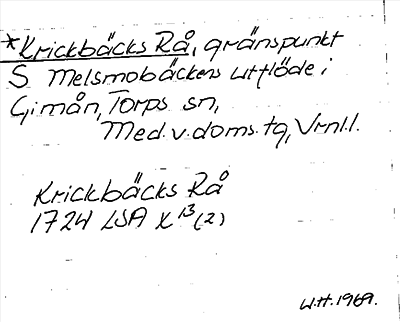 *Krickbäcks Rå, gränspunkt
S Melsmobäckens utflöde i
Gimån, Torps sn,
Med.v.doms.tg, Vrnl.l.
Krickbäcks Rå
1724 LSA X 13 (2)
W.H. 1969.